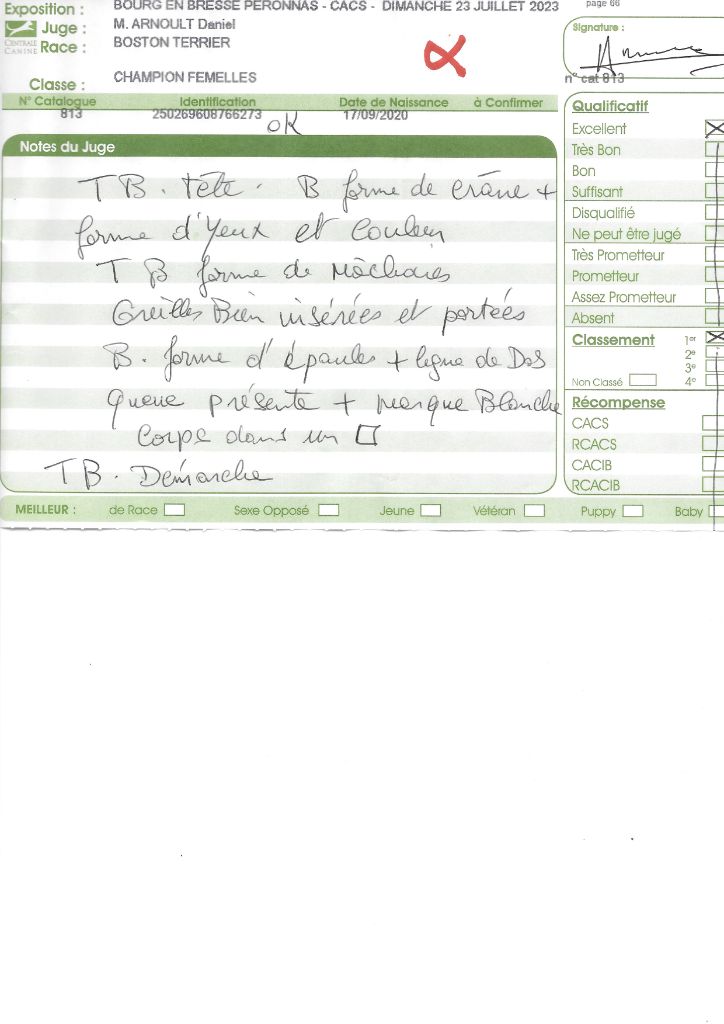 Exposition : BOURG EN BRESSE PERONNAS - CACS - DIMANCHE 23 JUILLET 2023
page 66
Juge : M. ARNOULT Daniel
CENTRALE CANINE
Race : BOSTON TERRIER
Signature :
Classe : CHAMPION FEMELLES
n° cat 813
N° Catalogue Identification Date de Naissance à Confirmer
813 250269608766273 17/09/2020
OK
Notes du Juge
TB. tête. B forme de crâne +
forme d'Yeux et Couleur
TB forme de Mâchoires
Oreilles Bien insérées et portées
B. forme d'épaules + ligne de Dos
queue présente + marque Blanche
Corps dans un □
TB. Démarche
Qualificatif
Excellent
Très Bon
Bon
Suffisant
Disqualifié
Ne peut être jugé
Très Prometteur
Prometteur
Assez Prometteur
Absent
Classement 1er
2e
3e
Non Classé 4e
Récompense
CACS
RCACS
CACIB
RCACIB
MEILLEUR : de Race Sexe Opposé Jeune Vétéran Puppy Baby